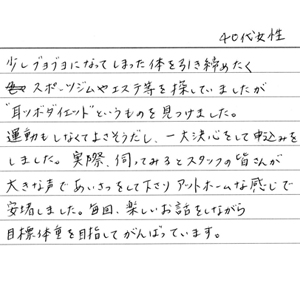 40代女性
少しブヨブヨになってしまった体を引き締めたく
スポーツジムやエステ等を探していましたが
"耳ツボダイエット"というものを見つけました。
運動もしなくてよさそうだし、一大決心をして申込みを
しました。実際、伺ってみるとスタッフの皆さんが
大きな声であいさつをして下さりアットホームな感じで
安堵しました。毎回、楽しいお話をしながら
目標体重を目指してがんばっています。